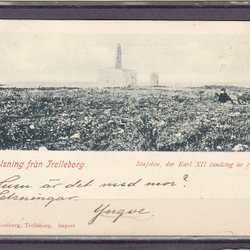 lsning från Trelleborg
Stafsten, der Karl XII landsteg av
Hurn är det med mor?
Helsningar.
Yngve.
Trelleborg. Import